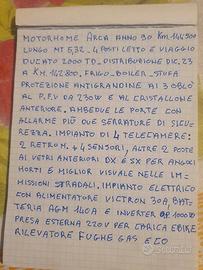 MOTORHOME ARCA ANNO 90 KM. 142.500
LUNGO MT 5,32 - 4 POSTI LETTO E VIAGGIO
DUCATO 2000 TD - DISTRIBUZIONE DIC. 23
A KM. 142.800, FRIGO - BOILER - STUFA
PROTEZIONE ANTIGRANDINE AI 3 OBLO'
AL P.F.V DA 230W E AL CRISTALLONE
ANTERIORE. AMBEDUE LE PORTE CON
ALLARME PIÙ DUE SERRATURE DI SICU
REZZA. IMPIANTO DI 4 TELECAMERE:
2 RETROM. + 4 SENSORI, ALTRE 2 POSTE
AI VETRI ANTERIORI DX E SX PER ANGOLI
MORTI E MIGLIOR VISUALE NELLE IM-
MISSIONI STRADALI, IMPIANTO ELETTRICO
CON ALIMENTATORE VICTRON 30A, BAT-
TERIA AGM 140A E INVERTER 1000
PRESA ESTERNA 220V PER CARICA EBIKE
RILEVATORE FUGHE GAS E CO